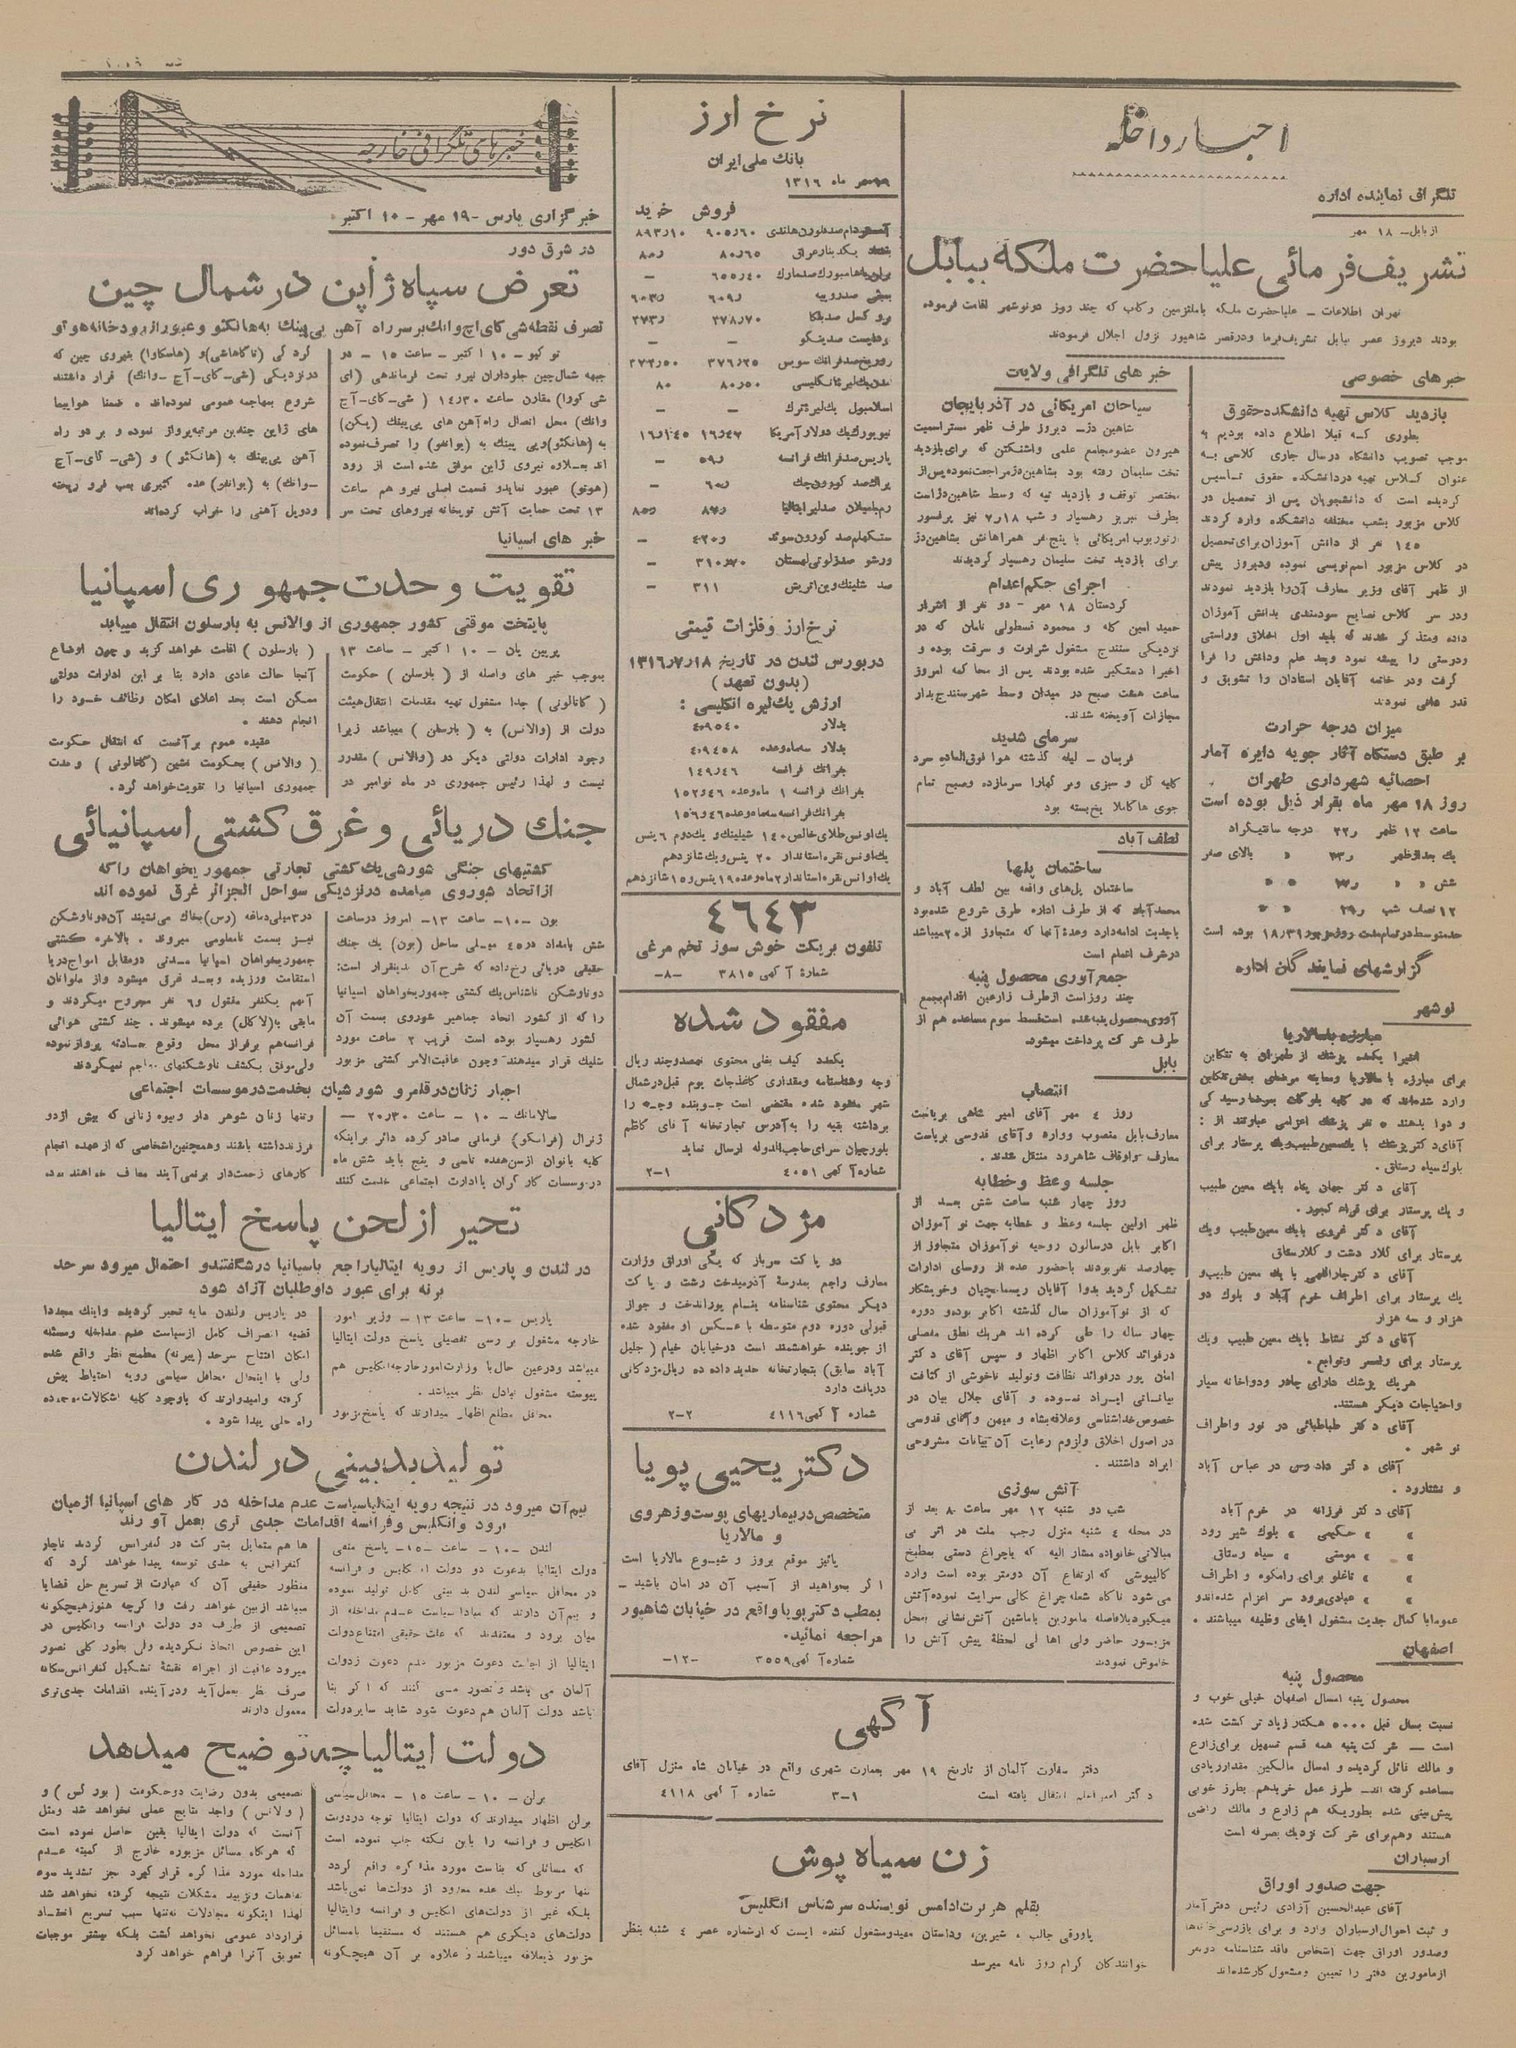 اخبار داخله
تلگراف نماینده اداره
از بابل - ۱۸ مهر
تشریف فرمائی علیاحضرت ملکه ببابل
تهران اطلاعات - علیاحضرت ملکه باملتزمین رکاب که چند روز درنوشهر اقامت فرموده
بودند دیروز عصر ببابل تشریف فرما ودرقصر شاهپور نزول اجلال فرمودند
خبرهای خصوصی
بازدید کلاس تهیه دانشکده حقوق
بطوری که قبلا اطلاع داده بودیم به
موجب تصویب دانشگاه درسال جاری کلاسی به
عنوان کلاس تهیه دردانشکده حقوق تأسیس
گردیده است که دانشجویان پس از تحصیل در
کلاس مزبور بشعب مختلفه دانشکده وارد گردند
۱٤٥ نفر از دانش آموزان برای تحصیل
در کلاس مزبور اسم نویسی نموده ودیروز پیش
از ظهر آقای وزیر معارف آن را بازدید نمودند
ودر سر کلاس نصایح سودمندی بدانش آموزان
داده ومتذکر شدند که باید اول اخلاق وراستی
ودرستی را پیشه نمود وبعد علم ودانش را فرا
گرفت ودر خاتمه آقایان استادان را تشویق و
قدردانی نمودند
میزان درجه حرارت
بر طبق دستگاه آثار جویه دایره آمار
احصائیه شهرداری طهران
روز ۱۸ مهر ماه بقرار ذیل بوده است
ساعت ۱۲ ظهر ۲۲ر درجه سانتیگراد
یك بعدازظهر ۲۳ر » بالای صفر
شش » » » »
۱۲ نصف شب ۲۹ر » »
حدمتوسط درتمام مدت روز مزبور ۱۸ر۳۹ بوده است
گزارشهای نمایندگان اداره
نوشهر
مبارزه بامالاریا
اخیرا یکعده پزشك از طهران به تنکابن
برای مبارزه با مالاریا
و دوا بدهند ٥ نفر پزشك اعزامی عبارتند از :
آقای دکترپزشك با یکنفر معین طبیب ویك پرستار برای
بلوك سیاه رستاق .
آقای دکتر جهان پناه بایك معین طبیب
و یك پرستار برای
آقای دکتر غروی بایك معین طبیب ویك
پرستار برای کلار دشت و کلارستاق
یك پرستار برای اطراف خرم آباد و بلوك دو
هزار و سه هزار
آقای دکتر نشاط بایك معین طبیب ویك
پرستار برای رامسر وتوابع .
هریك پزشك دارای چادر ودواخانه سیار
واحتیاجات دیگر هستند.
آقای دکتر طباطبائی در نور واطراف
نو شهر .
آقای دکتر دادرس در عباس آباد
و نشتارود .
آقای دکتر فرزانه در خرم آباد
» » حکیمی » بلوك شیر رود
» » مومنی » سیاه رستاق
» » ناغلو برای رامکوه و اطراف
عموما با کمال جدیت مشغول ایفای وظیفه میباشند .
اصفهان
محصول پنبه
محصول پنبه امسال اصفهان خیلی خوب و
نسبت بسال قبل ٥٠٠٠ هکتار زیادتر کشت شده
است - شرکت پنبه همه قسم تسهیل برای زارع
و مالك قائل گردیده و امسال مالکین مقدار زیادی
مساعده گرفته اند - طرز عمل خریدهم بطرز خوبی
پیش بینی شده بطوریکه هم زارع و مالك راضی
هستند وهم برای شرکت نزدیك بصرفه است
ارسباران
جهت صدور اوراق
آقای عبدالحسین آزادی رئیس دفتر آمار
و ثبت احوال ارسباران وارد و برای بازرسی
وصدور اوراق جهت اشخاص فاقد شناسنامه دونفر
ازمامورین دفتر را تعیین ومشغول کارشده اند
خبرهای تلگرافی ولایات
سیاحان امریکائی در آذربایجان
شاهین دژ - دیروز طرف ظهر مستراسمیت
هیرون عضومجامع علمی واشنگتن که برای بازدید
تخت سلیمان رفته بود بشاهین دژمراجعت نموده پس از
مختصر توقف و بازدید تپه که وسط شاهین دژ است
بطرف تبریز رهسپار و شب ۷ر۱۸ نیز پرفسور
ارتورپوپ امریکائی با پنج نفر همراهانش بشاهین دژ
برای بازدید تخت سلیمان رهسپار گردیدند
اجرای حکم اعدام
کردستان ۱۸ مهر - دو نفر از اشرار
حمید امین کله و محمود قسطولی نامان که در
نزدیکی سنندج مشغول شرارت و سرقت بوده و
اخیرا دستگیر شده بودند پس از محاکمه امروز
ساعت هشت صبح در میدان وسط شهر سنندج بدار
مجازات آویخته شدند.
سرمای شدید
فریمان - لیله گذشته هوا فوق العاده سرد
کلیه گل و سبزی ومو کهارا سرمازده وصبح تمام
جوی هاکاملا یخ بسته بود
لطف آباد
ساختمان پلها
ساختمان پل های واقعه بین لطف آباد و
محمدآباد که از طرف اداره طرق شروع شده بود
باجدیت ادامه دارد وعدة آنها که متجاوز از ۲۰ میباشد
درشرف اتمام است
جمع آوری محصول پنبه
چند روز است از طرف زارعین اقدام بجمع
آوری محصول پنبه شده است قسط سوم مساعده هم از
طرف شرکت پرداخت میشود.
بابل
انتصاب
روز ٤ مهر آقای امیر شاهی بریاست
معارف بابل منصوب ووارد وآقای قدوسی بریاست
معارف واوقاف شاهرود منتقل شدند .
جلسه وعظ وخطابه
روز چهار شنبه ساعت شش بعد از
ظهر اولین جلسه وعظ و خطابه جهت نوآموزان
اکابر بابل درسالون روحیه نوآموزان متجاوز از
چهارصد نفر بودند باحضور عده از روسای ادارات
تشکیل گردید بدوا آقایان ریسمانچیان وخویشکار
که از نوآموزان سال گذشته اکابر بوده و دوره
چهار ساله را طی کرده اند هریك نطق مفصلی
درفوائد کلاس اکابر اظهار و سپس آقای دکتر
امان پور درفوائد نظافت وتولید ناخوشی از کثافت
بیاناتی ایراد نموده و آقای جلال بیان در
خصوص خداشناسی وعلاقه بشاه و میهن وآقای قدوسی
در اصول اخلاق ولزوم رعایت آن بیانات مشروحی
ایراد داشتند .
آتش سوزی
شب دو شنبه ۱۲ مهر ساعت ۸ بعد از
در محله ٤ شنبه منزل رجب ملت در اثر بی
مبالاتی خانواده مشارالیه که باچراغ دستی بمطبخ
کالیپوشی که ارتفاع آن دومتر بوده است وارد
می شود ناگاه شعله چراغ کالی سرایت نموده آتش
میگیرد بلافاصله مامورین باماشین آتش نشانی بمحل
مزبور حاضر ولی اهالی لحظه پیش آتش را
خاموش نمودند
نرخ ارز
بانك ملی ایران
۱۹ مهر ماه ۱۳۱٦
فروش خرید
آمستردام صدفلورن هلندی ۹۰۵ر٦۰ ۸۹۳ر۱۰
بغداد یکدینار عراقی ۸۰ر٦٥ ۸۰ر
برلن یاهامبورك صدمارك ٦٥٥ر٤٠ -
بمبئی صدروپیه ٦۰۹ر ٦۰۳ر
بروکسل صدبلگا ۲۷۸ر۷۰ ۲۷۳ر
زوریخ صد فرانك سویس ۳۷٦ر۲٥ ۳۷۲ر٥۰
لندن یك لیره انگلیسی ۸۰ر٥۰ ۸۰
اسلامبول یك لیره ترك - -
نیویورك یك دولار آمریکا ۱٦ر٤۷ ۱٦ر۱٤٥
پاریس صدفرانك فرانسه ٥۹ر -
پراك صد کورون چك ٦۰ر -
رم یامیلان صدلیر ایتالیا ۸۷ر ۸٥ر
ستکهلم صد کورون سوئد ٤۲۰ر -
ورشو صدزلوتی لهستان ۳۱۰ر۷۰ -
صد شلینك وین اتریش ۳۱۱ -
نرخ ارز وفلزات قیمتی
دربورس لندن در تاریخ ۱۸ر۷ر۱۳۱٦
(بدون تعهد)
ارزش یك لیره انگلیسی :
بدلار ٤ر۹٥٤۰
بدلار سه ماه وعده ٤ر۹٤٥۸
بفرانك فرانسه ۱٤۹ر٤٦
بفرانك فرانسه ۱ ماه وعده ۱٥۲ر٤٦
بفرانك فرانسه سه ماه وعده ۱٥٦ر٤٦
یك اونس طلای خالص ۱٤۰ شیلینك ویك دوم ٦ پنس
یك اونس نقره استاندار ۲۰ پنس ویك شانزدهم
یك اونس نقره استاندار ۲ ماه وعده ۱۹ پنس و۱٥ شانزدهم
٤٦٤۳
تلفون بریکت خوش سوز تخم مرغی
شمارۀ آگهی ۳۸۱٥ -۸-
مفقود شده
یکعدد کیف بغلی محتوی نهصدوچند ریال
وجه وشناسنامه ومقداری کاغذجات یوم قبل درشمال
شهر مفقود شده مقتضی است جوینده وجه را
برداشته بقیه را به آدرس تجارتخانه آقای کاظم
بلورچیان سرای حاجب الدوله ارسال نماید
شماره آگهی ٤۰٥۱ ۲-۱
مژدگانی
دو پاکت سرباز که یکی اوراق وزارت
معارف راجع بمدرسۀ آذرمیدخت رشت و پاکت
دیگر محتوی شناسنامه بنام پوراندخت و جواز
قبولی دوره دوم متوسطه با عکس او مفقود شده
از جوینده خواهشمند است درخیابان خیام ( جلیل
آباد سابق) بتجارتخانه حدید داده ده ریال مژدگانی
دریافت دارد
شماره آگهی ٤۱۱٦ ۲-۲
دکتر یحیی پویا
متخصص دربیماریهای پوست وزهروی
و مالاریا
پائیز موقع بروز و شیوع مالاریا است
اگر بخواهید از آسیب آن در امان باشید -
بمطب دکتر پویا واقع در خیابان شاهپور
مراجعه نمائید.
شماره آگهی ۳٥٥۹ -۱۲-
آگهی
دفتر سفارت آلمان از تاریخ ۱۹ مهر بعمارت شهری واقع در خیابان شاه منزل آقای
دکتر امیراعلم انتقال یافته است شماره آگهی ٤۱۱۸ ۳-۱
زن سیاه پوش
بقلم هربرت ادامس نویسنده سرشناس انگلیس
پاورقی جالب ، شیرین، وداستان مفیدومشغول کننده ایست که ازشماره عصر ٤ شنبه بنظر
خوانندگان گرام روز نامه میرسد
خبرهای تلگرافی خارجه
خبرگزاری پارس - ۱۹ مهر - ۱۰ اکتبر
در شرق دور
تعرض سپاه ژاپن در شمال چین
تصرف نقطه شی کای اچ وانك برسر راه آهن پی پینك به هانکئو و عبور از رودخانه هوتو
توکیو - ۱۰ اکتبر - ساعت ۱٥ - در
جبهه شمال چین جلوداران نیرو تحت فرماندهی (ای
شی کورا) مقارن ساعت ۱٤ر۳۰ ( شی-کای-آچ
وانك) محل اتصال راه آهن های پی پینك (پکن)
به (هانکئو)وپی پینك به (یوانفو) را تصرف نموده
اند بعلاوه نیروی ژاپن موفق شده است از رود
(هوتو) عبور نمایدو قسمت اصلی نیرو هم ساعت
۱۳ تحت حمایت آتش توپخانه نیروهای تحت سر
کردگی (ناگاهاشی)و (هاسکاوا) بنیروی چین که
درنزدیکی (شی-کای-آچ -وانك) قرار داشتند
شروع بمهاجمه عمومی نموده اند. ضمنا هواپیما
های ژاپن چندین مرتبه پرواز نموده و بر دو راه
آهن پی پینك به (هانکئو ) و (شی-کای-آچ
-وانك) به (یوانفو) عده کثیری بمب فرو ریخته
ودوپل آهنی را خراب کرده اند
خبر های اسپانیا
تقویت وحدت جمهوری اسپانیا
پایتخت موقتی کشور جمهوری از والانس به بارسلون انتقال مییابد
پرپین یان - ۱۰ اکتبر - ساعت ۱۳
بموجب خبر های واصله از ( بارسلن ) حکومت
( کاتالونی ) جدا مشغول تهیه مقدمات انتقال هیئت
دولت از (والانس) به ( بارسلن ) میباشد زیرا
وجود ادارات دولتی دیگر در (والانس) مقدور
نیست و لهذا رئیس جمهوری در ماه نوامبر در
( بارسلون) اقامت خواهد گزید و چون اوضاع
آنجا حالت عادی دارد بنا بر این ادارات دولتی
ممکن است بحد اعلای امکان وظائف خود را
انجام دهند .
عقیده عموم برآنست که انتقال حکومت
( والانس ) بحکومت نشین (کاتالونی ) وحدت
جمهوری اسپانیا را تقویت خواهد کرد.
جنك دریائی وغرق کشتی اسپانیائی
کشتیهای جنگی شورشی یك کشتی تجارتی جمهوریخواهان راکه
ازاتحاد شوروی میامده درنزدیکی سواحل الجزائر غرق نموده اند
بون -۱۰- ساعت ۱۳- امروز درساعت
شش بامداد در ٤٥ میلی ساحل (بون) یك جنك
حقیقی دریائی رخ داده که شرح آن بدینقرار است:
دوناوشکن ناشناس یك کشتی جمهوریخواهان اسپانیا
را که از کشور اتحاد جماهیر شوروی بسمت آن
کشور رهسپار بوده است قریب ۲ ساعت مورد
شلیك قرار میدهند وچون عاقبت الامر کشتی مزبور
در ۳میلی دماغه (رس)بخاك می نشیند آن دوناوشکن
نیز بسمت نامعلومی میروند . بالاخره کشتی
جمهوریخواهان اسپانیا مدتی درمقابل امواج دریا
استقامت ورزیده وبعد غرق میشود واز ملوانان
آنهم یکنفر مقتول و٦ نفر مجروح میگردند و
مابقی به(لاکال) برده میشوند . چند کشتی هوائی
فرانسه هم برفراز محل وقوع حادثه پرواز نموده
ولی موفق بکشف ناوشکنهای مهاجم نمیگردند
اجبار زنان درقلمرو شورشیان بخدمت درموسسات اجتماعی
سالامانك - ۱۰ - ساعت ۲۰ر۳۰ -
ژنرال (فرانکو) فرمانی صادر کرده دائر براینکه
کلیه بانوان ازسن هفده تاسی و پنج باید شش ماه
درموسسات کارگران یا ادارت اجتماعی خدمت کنند
وتنها زنان شوهر دار وبیوه زنانی که بیش ازدو
فرزندداشته باشند وهمچنین اشخاصی که ازعهده انجام
کارهای زحمت دار برنمی آیند معاف خواهند بود
تحیر از لحن پاسخ ایتالیا
در لندن و پاریس از رویه ایتالیاراجع باسپانیا درشگفتندو احتمال میرود سرحد
پرنه برای عبور داوطلبان آزاد شود
پاریس -۱۰- ساعت ۱۳ - وزیر امور
خارجه مشغول بررسی تفصیلی پاسخ دولت ایتالیا
میباشد ودرعین حال با وزارت امور خارجه انگلیس هم
پیوسته مشغول تبادل نظر میباشد .
محافل مطلع اظهار میدارند که پاسخ مزبور
در پاریس ولندن مایه تحیر گردیده واینك مجددا
قضیه انصراف کامل ازسیاست عدم مداخله ومسئله
امکان افتتاح سرحد (پیرنه) مطمح نظر واقع شده
ولی با اینحال محافل سیاسی رویه احتیاط پیش
گرفته وامیدوارند که باوجود کلیه اشکالات موجوده
راه حلی پیدا شود .
تولید بدبینی در لندن
بیم آن میرود در نتیجه رویه ایتالیاسیاست عدم مداخله در کار های اسپانیا ازمیان
برود وانگلیس وفرانسه اقدامات جدی تری بعمل آورند
لندن -۱۰- ساعت -۱٥- پاسخ منفی
دولت ایتالیا بدعوت دو دولت انگلیس و فرانسه
در محافل سیاسی لندن بد بینی کامل تولید نموده
و بیم آن دارند که مبادا سیاست عدم مداخله از
میان برود و معتقدند که علت حقیقی امتناع دولت
ایتالیا از اجابت دعوت مزبور عدم دعوت ازدولت
آلمان می باشد وتصور می کنند که اگر بنا
باشد دولت آلمان هم دعوت شود شاید سایر دولت
ها هم متمایل بشرکت در کنفرانس گردند ناچار
کنفرانس به حدی توسعه پیدا خواهد کرد که
منظور حقیقی آن که عبارت از تسریع حل قضایا
میباشد ازبین خواهد رفت وا گرچه هنوزهیچگونه
تصمیمی از طرف دو دولت فرانسه وانگلیس در
این خصوص اتخاذ نگردیده ولی بطور کلی تصور
میرود عاقبت از اجراء نقشۀ تشکیل کنفرانس سه گانه
صرف نظر بعمل آید ودرآینده اقدامات جدی تری
معمول دارند
دولت ایتالیا چه توضیح میدهد
برلن - ۱۰ - ساعت ۱٥ - محافل سیاسی
برلن اظهار میدارند که دولت ایتالیا توجه دردولت
انگلیس و فرانسه را باین نکته جلب نموده است
که مسائلی که بناست مورد مذاکره واقع گردد
تنها مربوط بیك عده معدود از دولت ها نمی باشد
بلکه غیر از دولت های انگلیس و فرانسه وایتالیا
دولت های دیگری هم هستند که مستقیما بامسائل
مزبور ذیعلاقه میباشند و علاوه بر آن هیچگونه
تصمیمی بدون رضایت دوحکومت ( بورگس ) و
( والانس ) واجد نتایج عملی نخواهد شد ومثل
آنست که دولت ایتالیا یقین حاصل نموده است
که هرگاه مسائل مزبوره خارج از کمیته عدم
مداخله مورد مذاکره قرار گیرد جز تشدید سوء
تفاهمات وتزیید مشکلات نتیجه گرفته نخواهد شد
لهذا اینگونه مجادلات نه تنها سبب تسریع انعقاد
قرارداد عمومی نخواهد گشت بلکه بیشتر موجبات
تعویق آنرا فراهم خواهد کرد